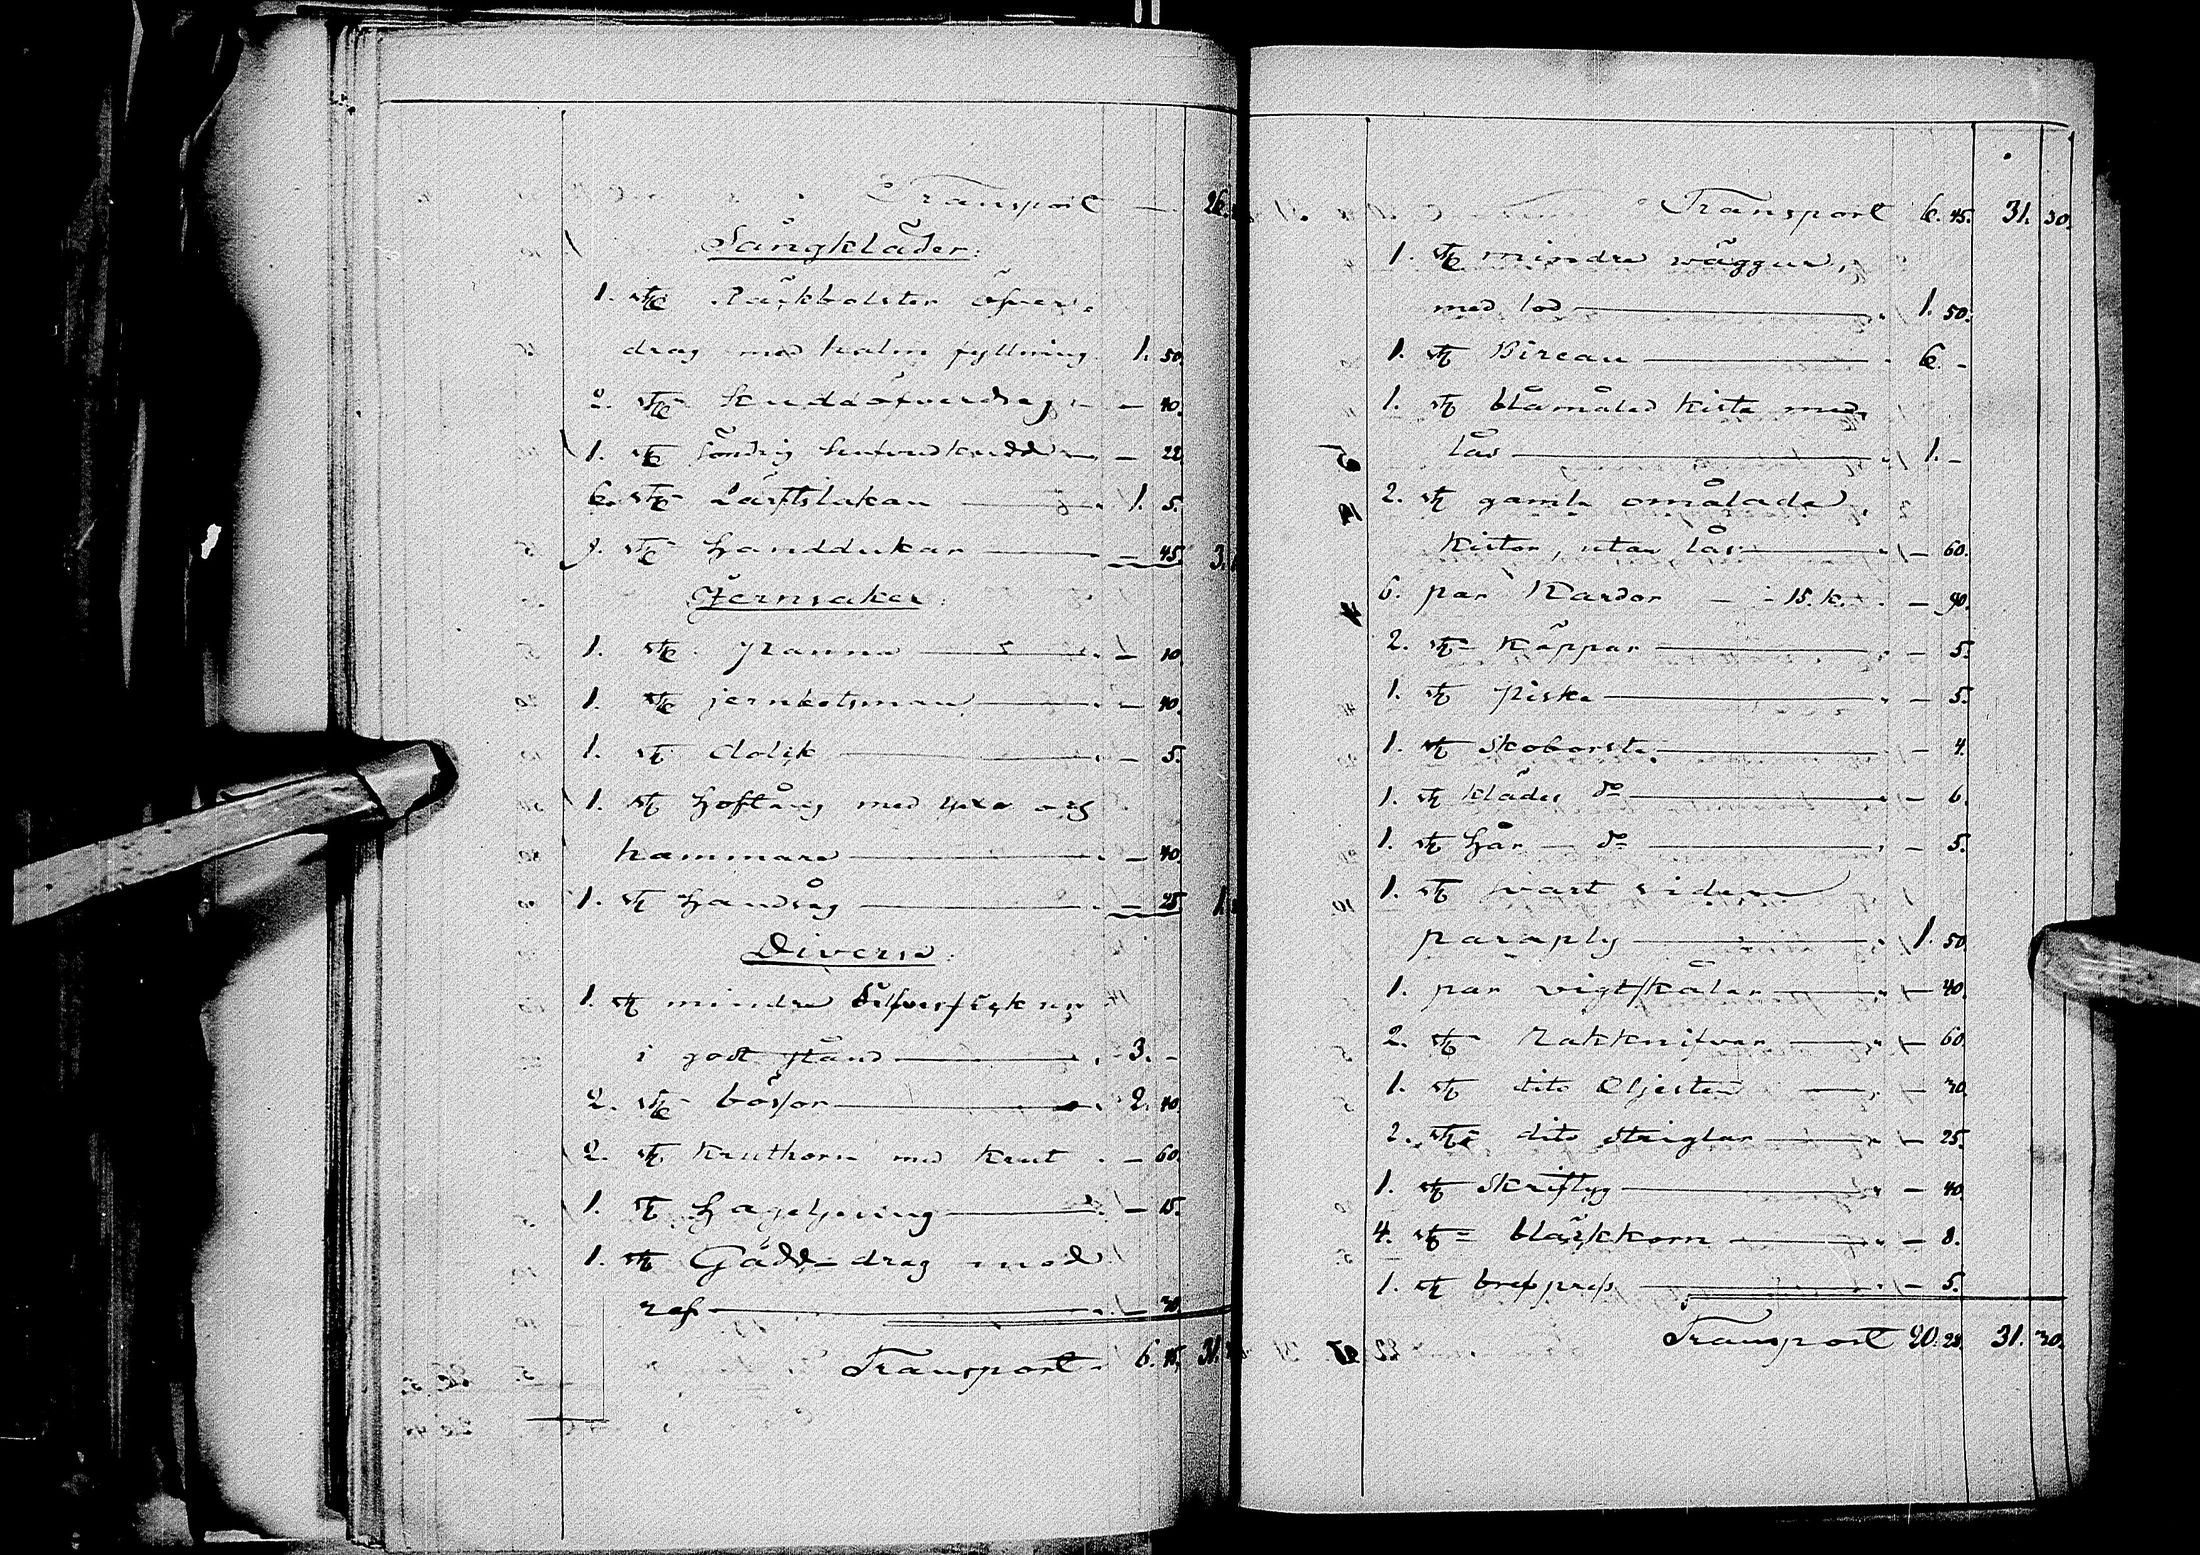 Transport — 26.
Sängkläder:
1. st Bäckbolster öfver-
drag med halm fyllning 1. 50.
2. st: Kuddöfverdrag - — 40.
1. st söndrig hufvudkudde — 22
6. st: Lärftslakan — 1. 5.
st: Handdukar — 45. 3.
Jernsaker
1. st. Panna — 10.
1. st jernkatsmau — 40.
1. st dolk — 5.
1. st Hoftång med yxa och
hammare — 40.
1. st Handsåg — 25 1.
Diverse:
1. st mindre Silfverfickur
i godt stånd — 3. -
2. st: bössor — 2. 40.
2. st Kruthorn med Krut — 60.
1. st Hageljning — 15.
1. st Gädd-drag med
ref — 30.
Transport. 6. 45. 31.
Transport 6. 45. 31. 30.
1. st mindre väggur,
med lod — 1. 50.
1. st Bireau — 6. -
1. st blåmålad Kista med
lås — 1. -
2. st gamla omålade
Kistor, utan lås — 60.
6. par Kardor — - 15. k. — 90.
2. st: Käppar — 5.
1. st piska — 5.
1. st skoborste — 4.
1. st kläder do — 6.
1. st Hår — do — 5.
1. st svart siden
paraply — 1. 50
1. par vigtskålar — 40.
2. st: Rakknifvar — 60.
1. st dito Oljesten — 30.
2. st: dito Striglar — 25.
1. st Skriftyg — 40.
4. st= bläckhorn — 8.
1. st brefpress — 5.
Transport 20. 28. 31. 30.